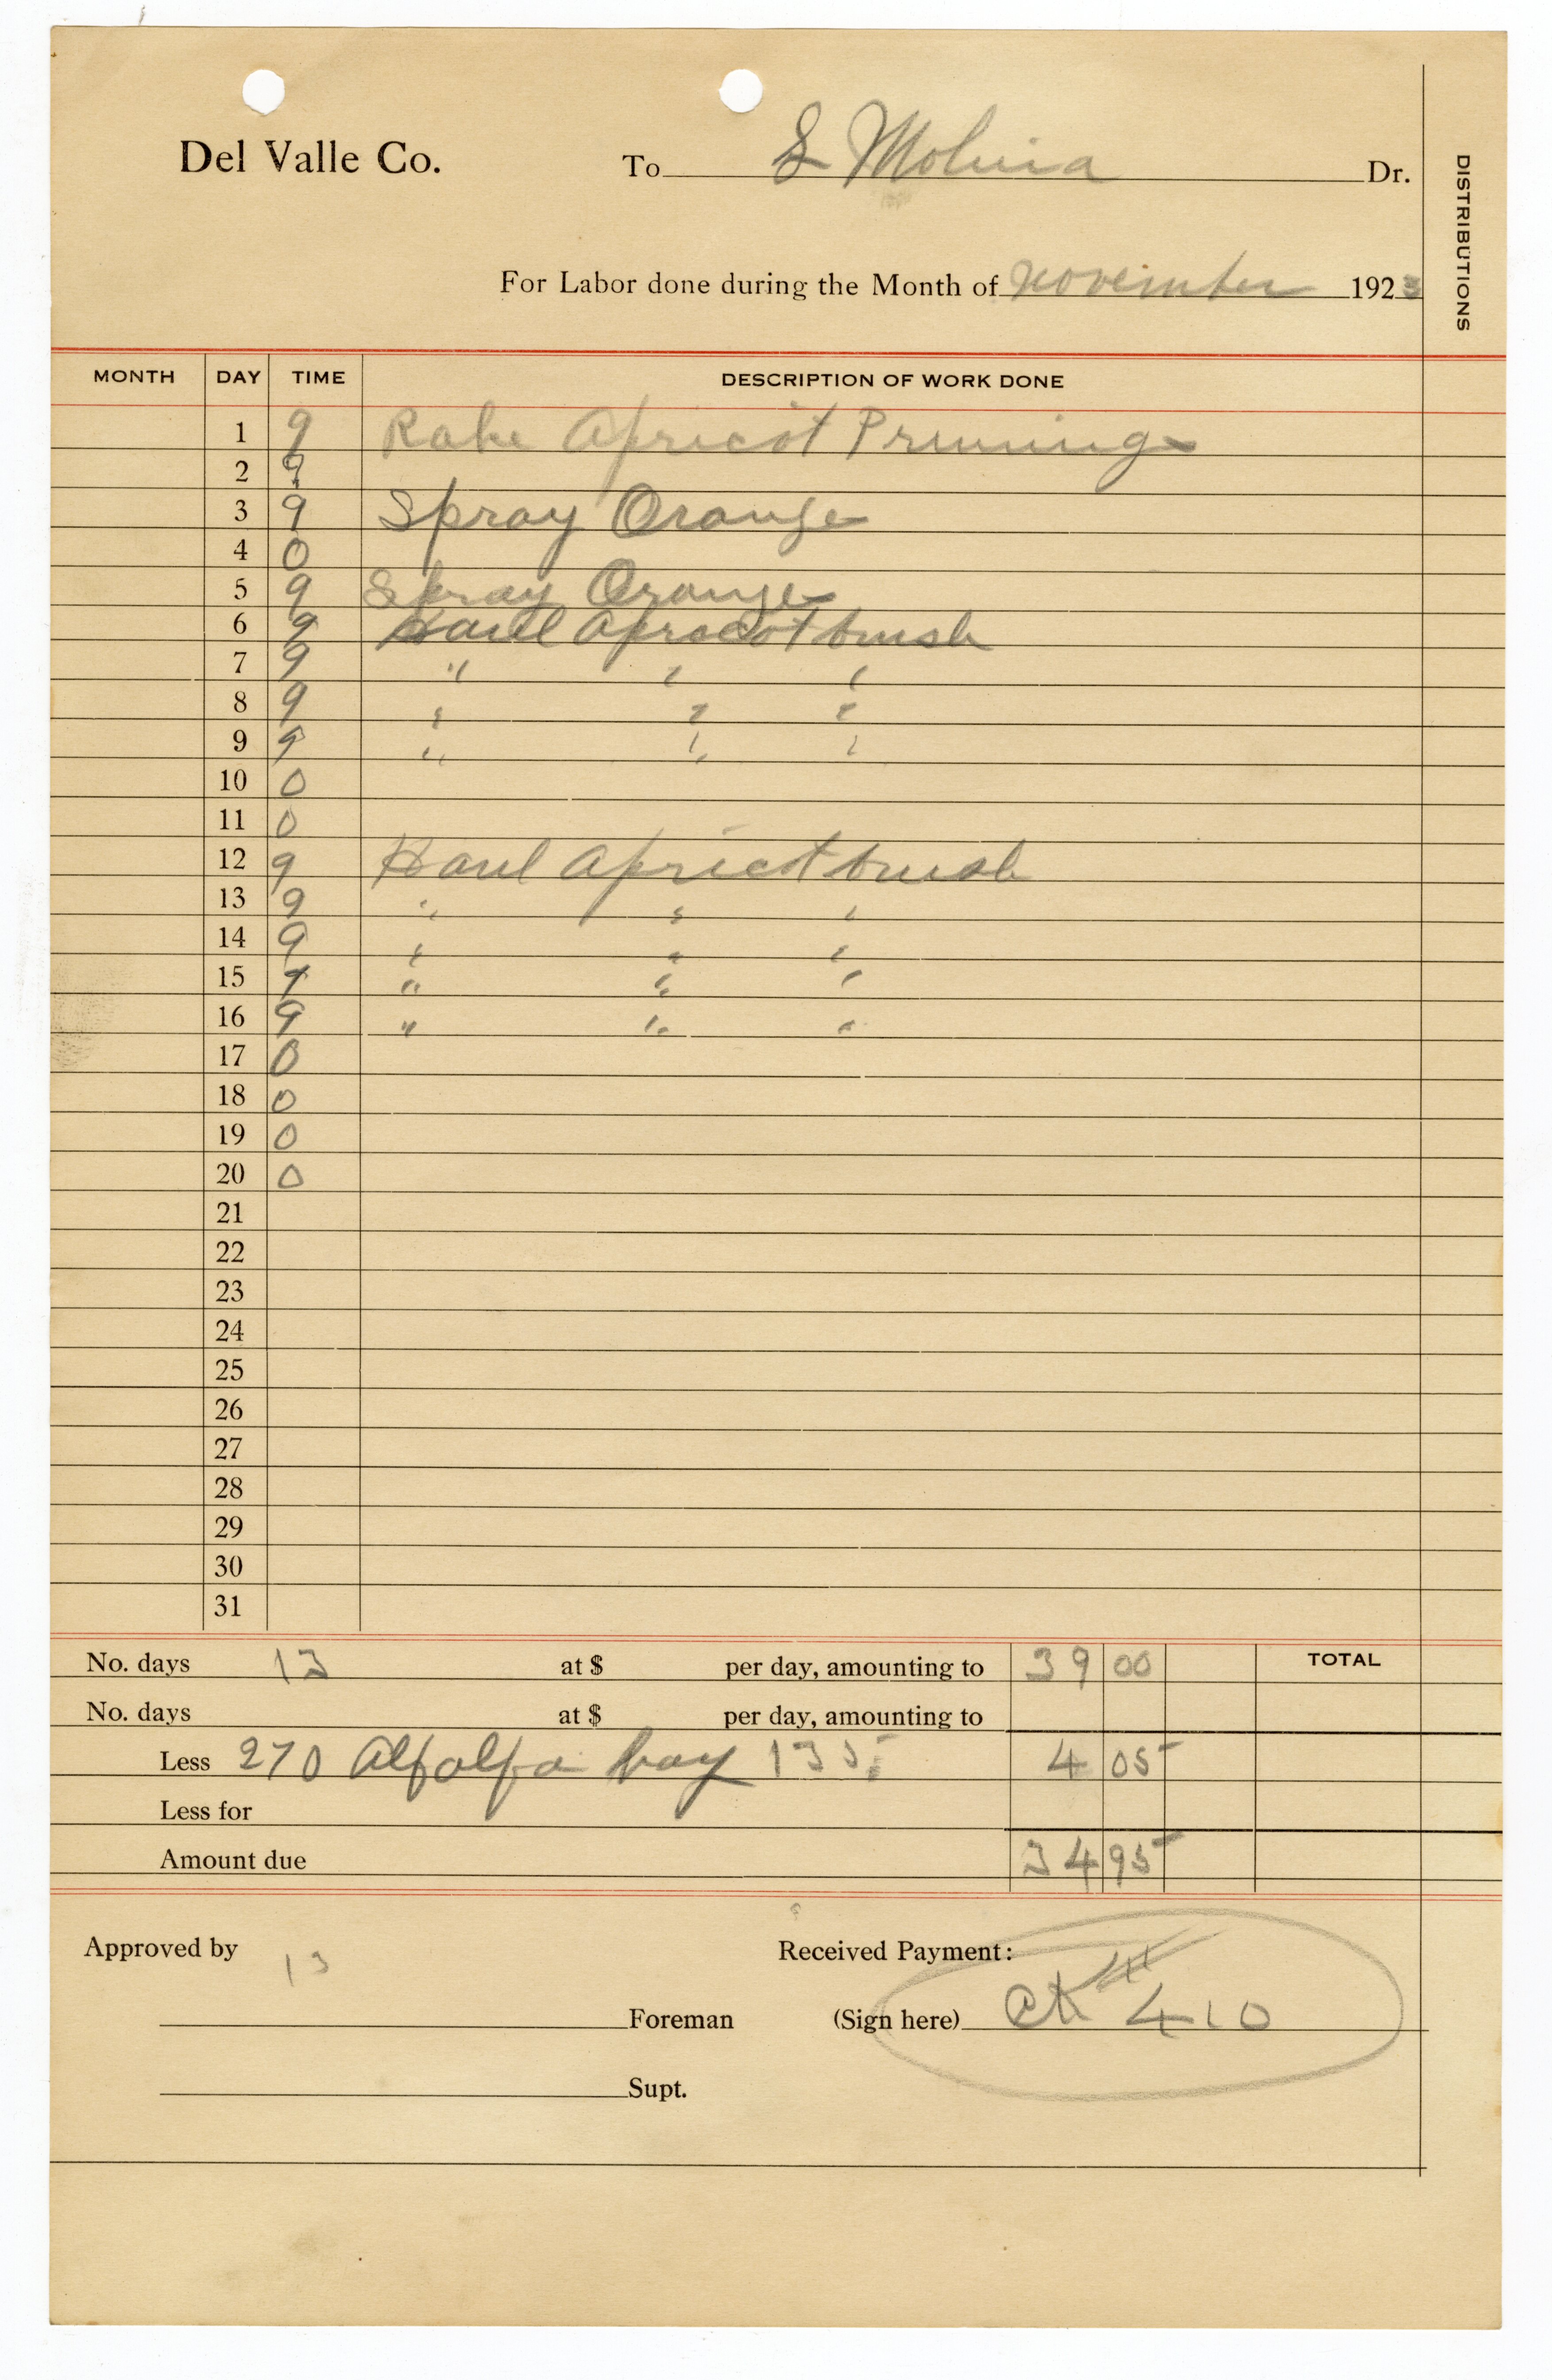 Del Valle Co. To S Molina Dr.
DISTRIBUTIONS
For Labor done during the Month of November 1923
MONTH DAY TIME DESCRIPTION OF WORK DONE
1 9 Rake Apricot Prunings
2 9
3 9 Spray Orange
4 0
5 9 Spray Orange
6 9 Haul Apricot brush
7 9 " " "
8 9 " " "
9 9 " " "
10 0
11 0
12 9 Haul Apricot brush
13 9 " " "
14 9 " " "
15 9 " " "
16 9 " " "
17 0
18 0
19 0
20 0
21
22
23
24
25
26
27
28
29
30
31
No. days 13 at $ per day, amounting to 39 00 TOTAL
No. days at $ per day, amounting to
Less 270 Alfalfa hay 4 05
Less for
Amount due 34 95
Approved by 13 Received Payment:
Foreman (Sign here) CK # 410
Supt.